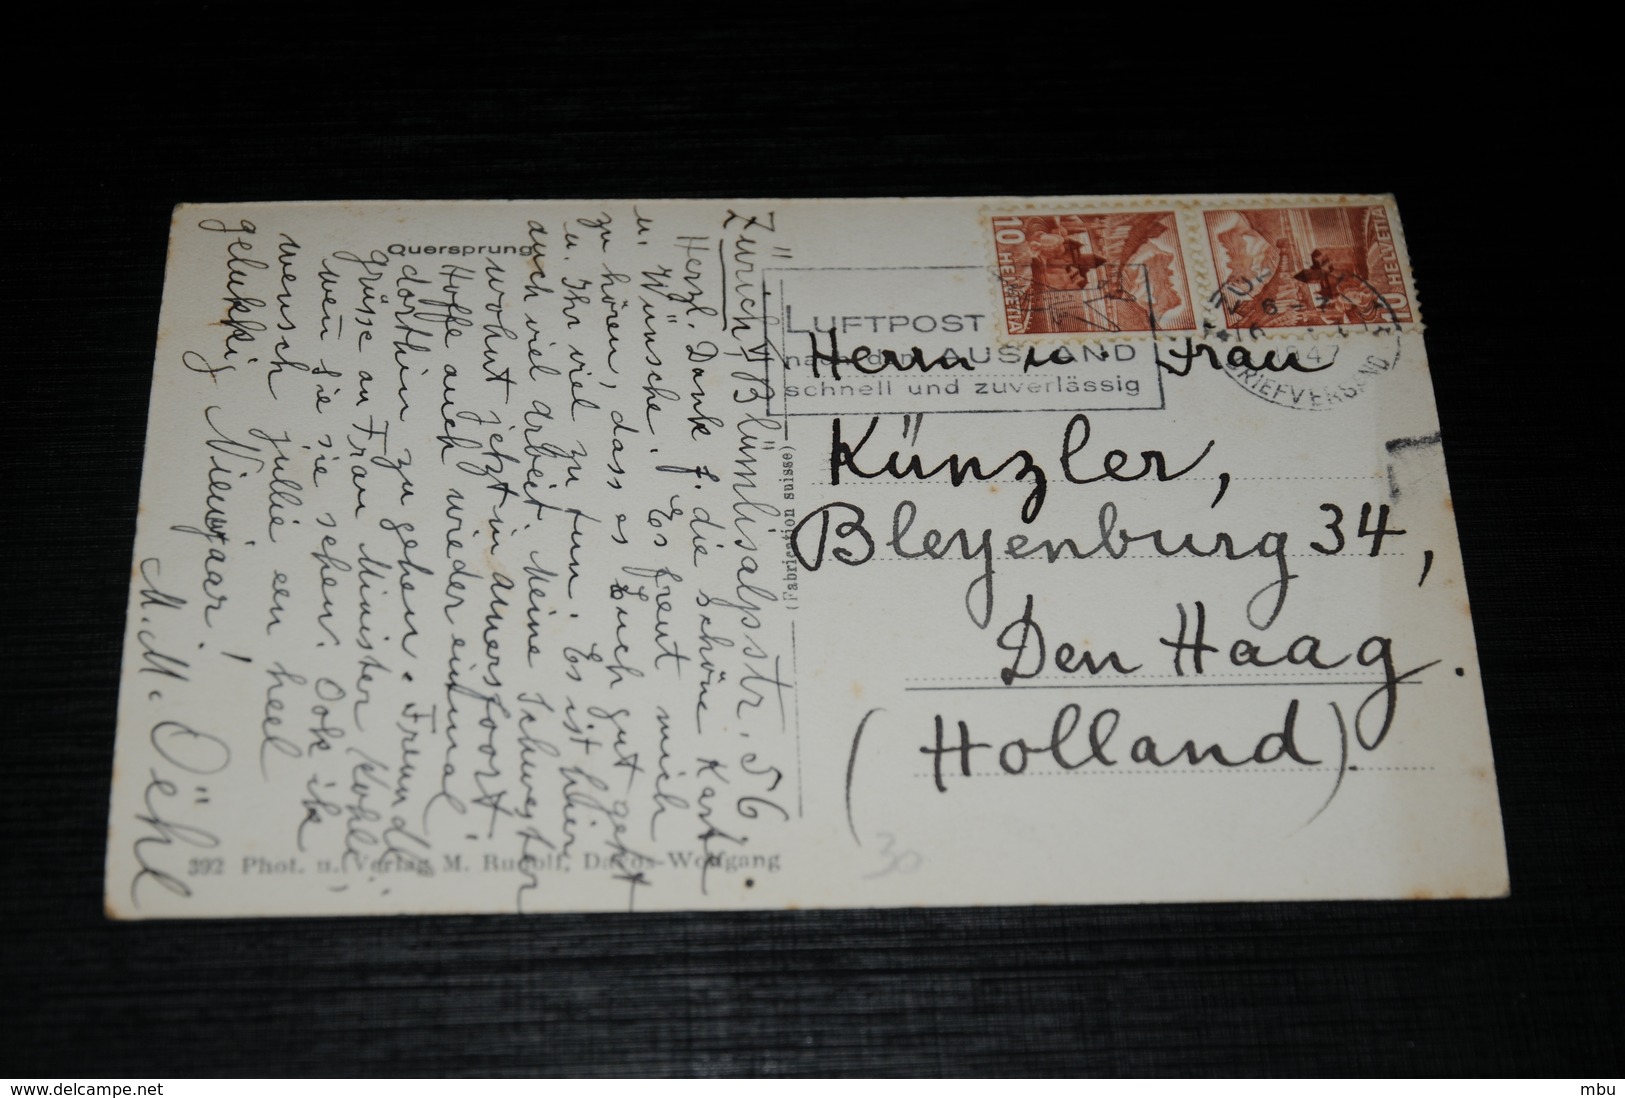 Quersprung
Zürich, Blümlisalpstr. 56.
Herzl. Dank f. die schöne Karte
u. Wünsche. Es freut mich
zu hören, dass es Euch gut geht
u. Ihr viel zu tun. Es ist hier
auch viel Arbeit. Meine Schwester
wohnt jetzt in Amersfoort.
Hoffe auch wieder einmal
dorthin zu gehen. Freundl.
Grüsse an Frau Minister Kohli,
wen Sie sie sehen. Ook ik
wensch jullie een heel
gelukkig Nieuwjaar!
M. M. Oëhl
392 Phot. u. Verlag M. Rudolf, Davos-Wolfgang
(Fabrication suisse)
LUFTPOST
nach dem AUSLAND
schnell und zuverlässig
10 HELVETIA
10 HELVETIA
1947
BRIEFVERSAND
Herrn u. Frau
Künzler,
Bleyenburg 34,
Den Haag.
(Holland).
30
www.delcampe.net
mbu